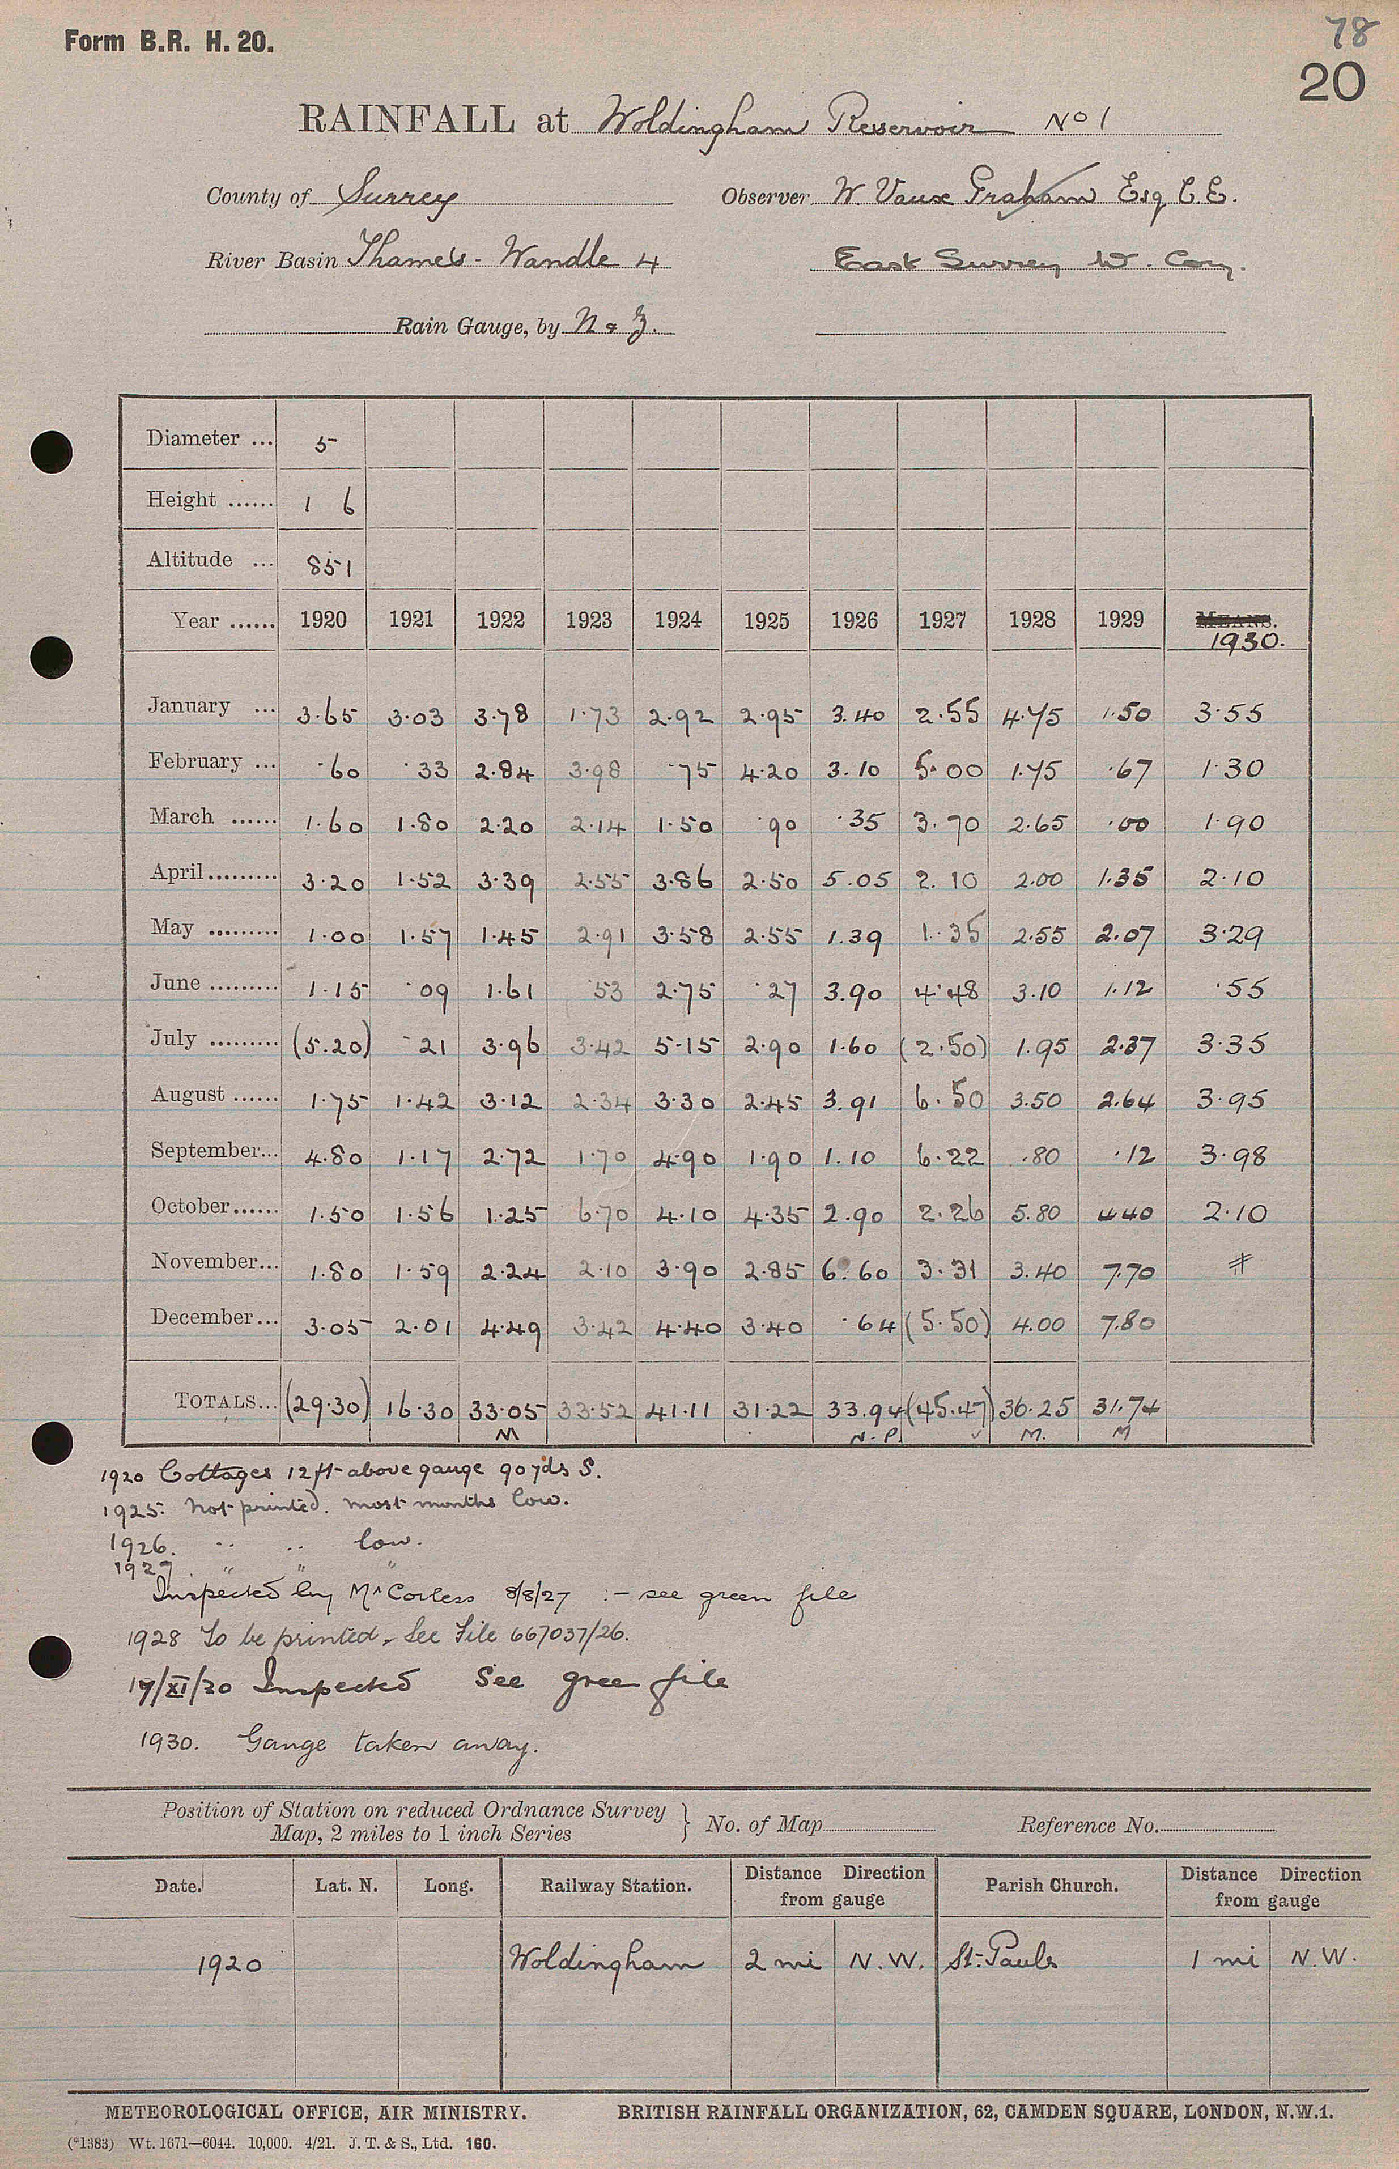 Form B.R. H. 20.
78
20
RAINFALL at Woldingham Reservoir No 1
County of Surrey Observer W. Vaux Graham Esq C.E.
River Basin Thames - Wandle 4 East Surrey W. Coy.
Rain Gauge, by N & Z.
Diameter ... 5
Height ...... 1 6
Altitude ... 851
Year ...... 1920 1921 1922 1923 1924 1925 1926 1927 1928 1929 MEANS. 1930.
January ... 3.65 3.03 3.78 1.73 2.92 2.95 3.40 2.55 4.75 1.50 3.55
February ... .60 .33 2.84 3.98 .75 4.20 3.10 5.00 1.75 .67 1.30
March ...... 1.60 1.80 2.20 2.14 1.50 .90 .35 3.70 2.65 .00 1.90
April......... 3.20 1.52 3.39 2.55 3.86 2.50 5.05 2.10 2.00 1.35 2.10
May ......... 1.00 1.57 1.45 2.91 3.58 2.55 1.39 1.35 2.55 2.07 3.29
June ......... 1.15 .09 1.61 .53 2.75 .27 3.90 4.48 3.10 1.12 .55
July ......... (5.20) .21 3.96 3.42 5.15 2.90 1.60 (2.50) 1.95 2.37 3.35
August ...... 1.75 1.42 3.12 2.34 3.30 2.45 3.91 6.50 3.50 2.64 3.95
September... 4.80 1.17 2.72 1.70 4.90 1.90 1.10 6.22 .80 .12 3.98
October...... 1.50 1.56 1.25 6.70 4.10 4.35 2.90 2.26 5.80 4.40 2.10
November... 1.80 1.59 2.24 2.10 3.90 2.85 6.60 3.31 3.40 7.70 #
December... 3.05 2.01 4.49 3.42 4.40 3.40 .64 (5.50) 4.00 7.80
TOTALS... (29.30) 16.30 33.05 33.52 41.11 31.22 33.94 (45.47) 36.25 31.74
M N.P. ✓ M. M
1920 Cottages 12ft above gauge 90 yds S.
1925. Not printed. most months low.
1926. " " low.
1927. " " "
Inspected by Mr Corless 8/8/27 :- see green file
1928 To be printed. See File 667037/26.
17/XI/30 Inspected See green file
1930. Gauge taken away.
Position of Station on reduced Ordnance Survey Map, 2 miles to 1 inch Series } No. of Map Reference No.
Date. Lat. N. Long. Railway Station. Distance Direction from gauge Parish Church. Distance Direction from gauge
1920 Woldingham 2 mi N.W. St. Pauls 1 mi N.W.
METEOROLOGICAL OFFICE, AIR MINISTRY. BRITISH RAINFALL ORGANIZATION, 62, CAMDEN SQUARE, LONDON, N.W.1.
(*1383) Wt. 1671—6044. 10,000. 4/21. J. T. & S., Ltd. 160.